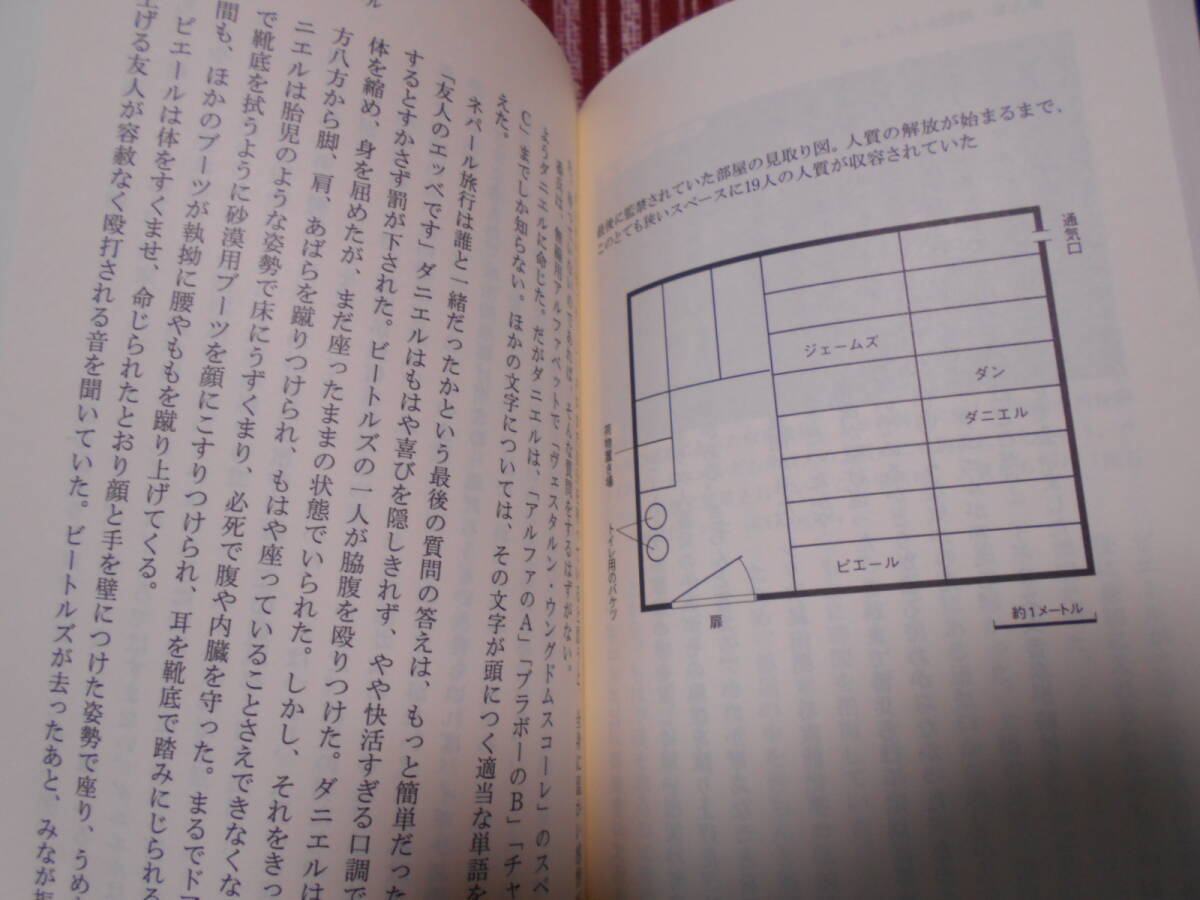 最後に監禁されていた部屋の見取り図。人質の解放が始まるまで、
このとても狭いスペースに19人の人質が収容されていた
通気口
ジェームズ
ダン
ダニエル
ピエール
荷物置き場
トイレ用のバケツ
扉
約1メートル
そんな質問をするはずがない。
無線用アルファベットで「ヴェスタルン・ウングドムスコーレ」のスペ
ようダニエルに命じた。だがダニエルは、「アルファのA」「ブラボーのB」「チャ
C」までしか知らない。ほかの文字については、その文字が頭につく適当な単語を
えた。
ネパール旅行は誰と一緒だったかという最後の質問の答えは、もっと簡単だった
「友人のエッベです」ダニエルはもはや喜びを隠しきれず、やや快活すぎる口調で
するとすかさず罰が下された。ビートルズの一人が脇腹を殴りつけた。ダニエルは
体を縮め、身を屈めたが、まだ座ったままの状態でいられた。しかし、それをきっ
方八方から脚、肩、あばらを蹴りつけられ、もはや座っていることさえできなくな
ニエルは胎児のような姿勢で床にうずくまり、必死で腹や内臓を守った。まるでドア
で靴底を拭うように砂漠用ブーツを顔にこすりつけられ、耳を靴底で踏みにじられる
間も、ほかのブーツが執拗に腰やももを蹴り上げてくる。
ピエールは体をすくませ、命じられたとおり顔と手を壁につけた姿勢で座り、うめ
上げる友人が容赦なく殴打される音を聞いていた。ビートルズが去ったあと、みなが
ル